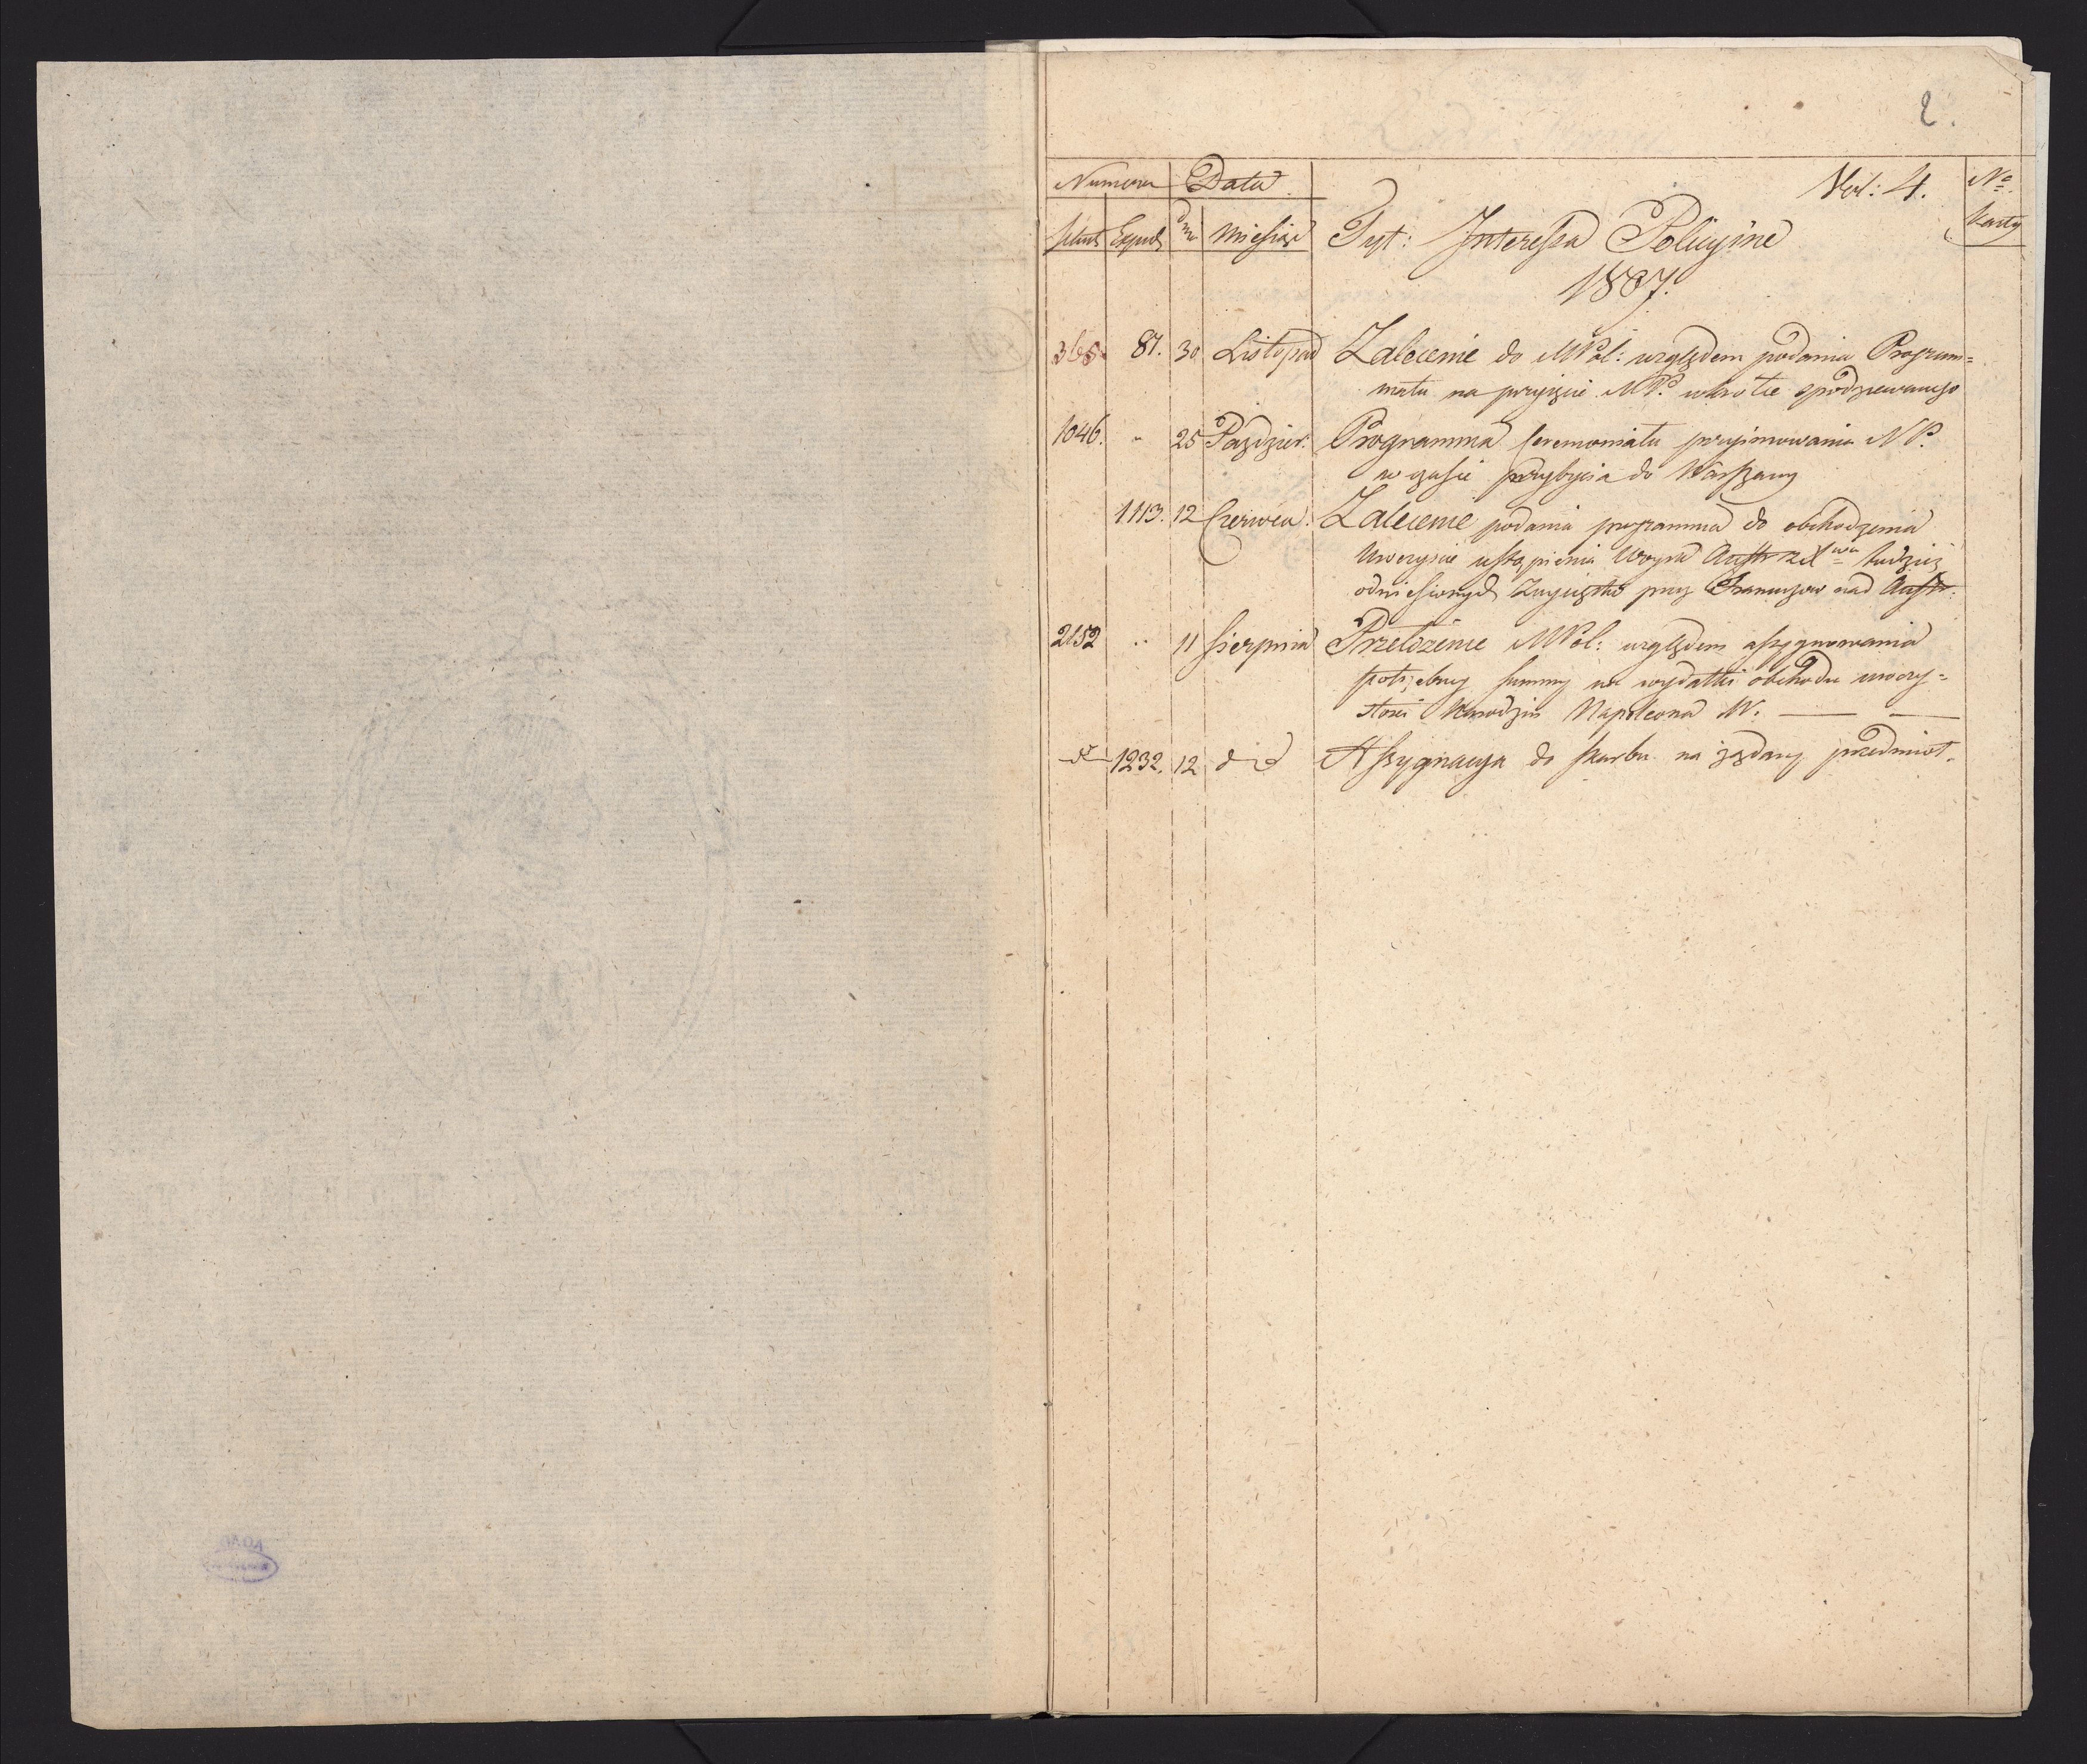 2.
Numera Data Vol: 4. No
Expd dnia Miesiąc Tyt: Interessa Policyine Karty
1807.
365. 87. 30 Listopad Zalecenie do MPol: względem podania Program=
matu na przyięcie NP. wkrotce spodziewanego
1046. " 25 Paździer: Programma Ceremoniału przyimowania NP.
w czasie przybycia do Warszawy
1113. 12 Czerwca. Zalecenie podania programma do obchodzenia
uroczyście ustąpienia Woysk Austr z XWa tudzież
odniesionych Zwycięstw przez Francuzow nad Austr.
2152 " 11 Sierpnia Przełożenie MPol: względem assygnowania
potrzebney summy na wydatki obchodu uroczy=
stości Narodzin Napoleona W:
1232. 12 do Assygnacya do skarbu na żądany przedmiot.